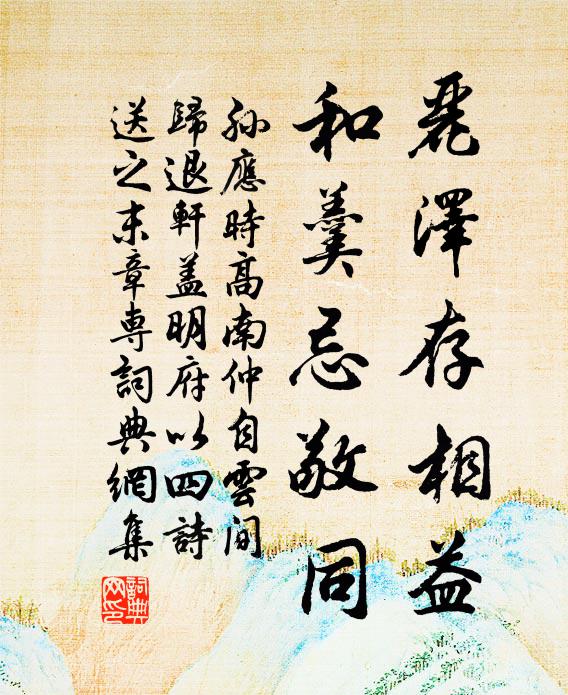 麗澤存相益
和羹忌敬同
孫應時高南仲自雲間
歸退軒蓋明府以四詩
送之末章專詞典網集
詞典
网印